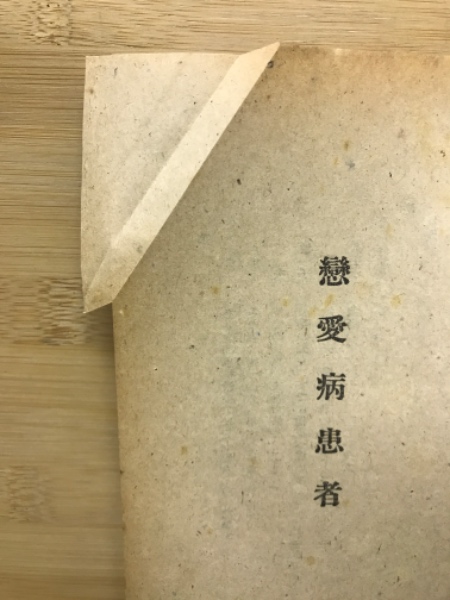 戀愛病患者